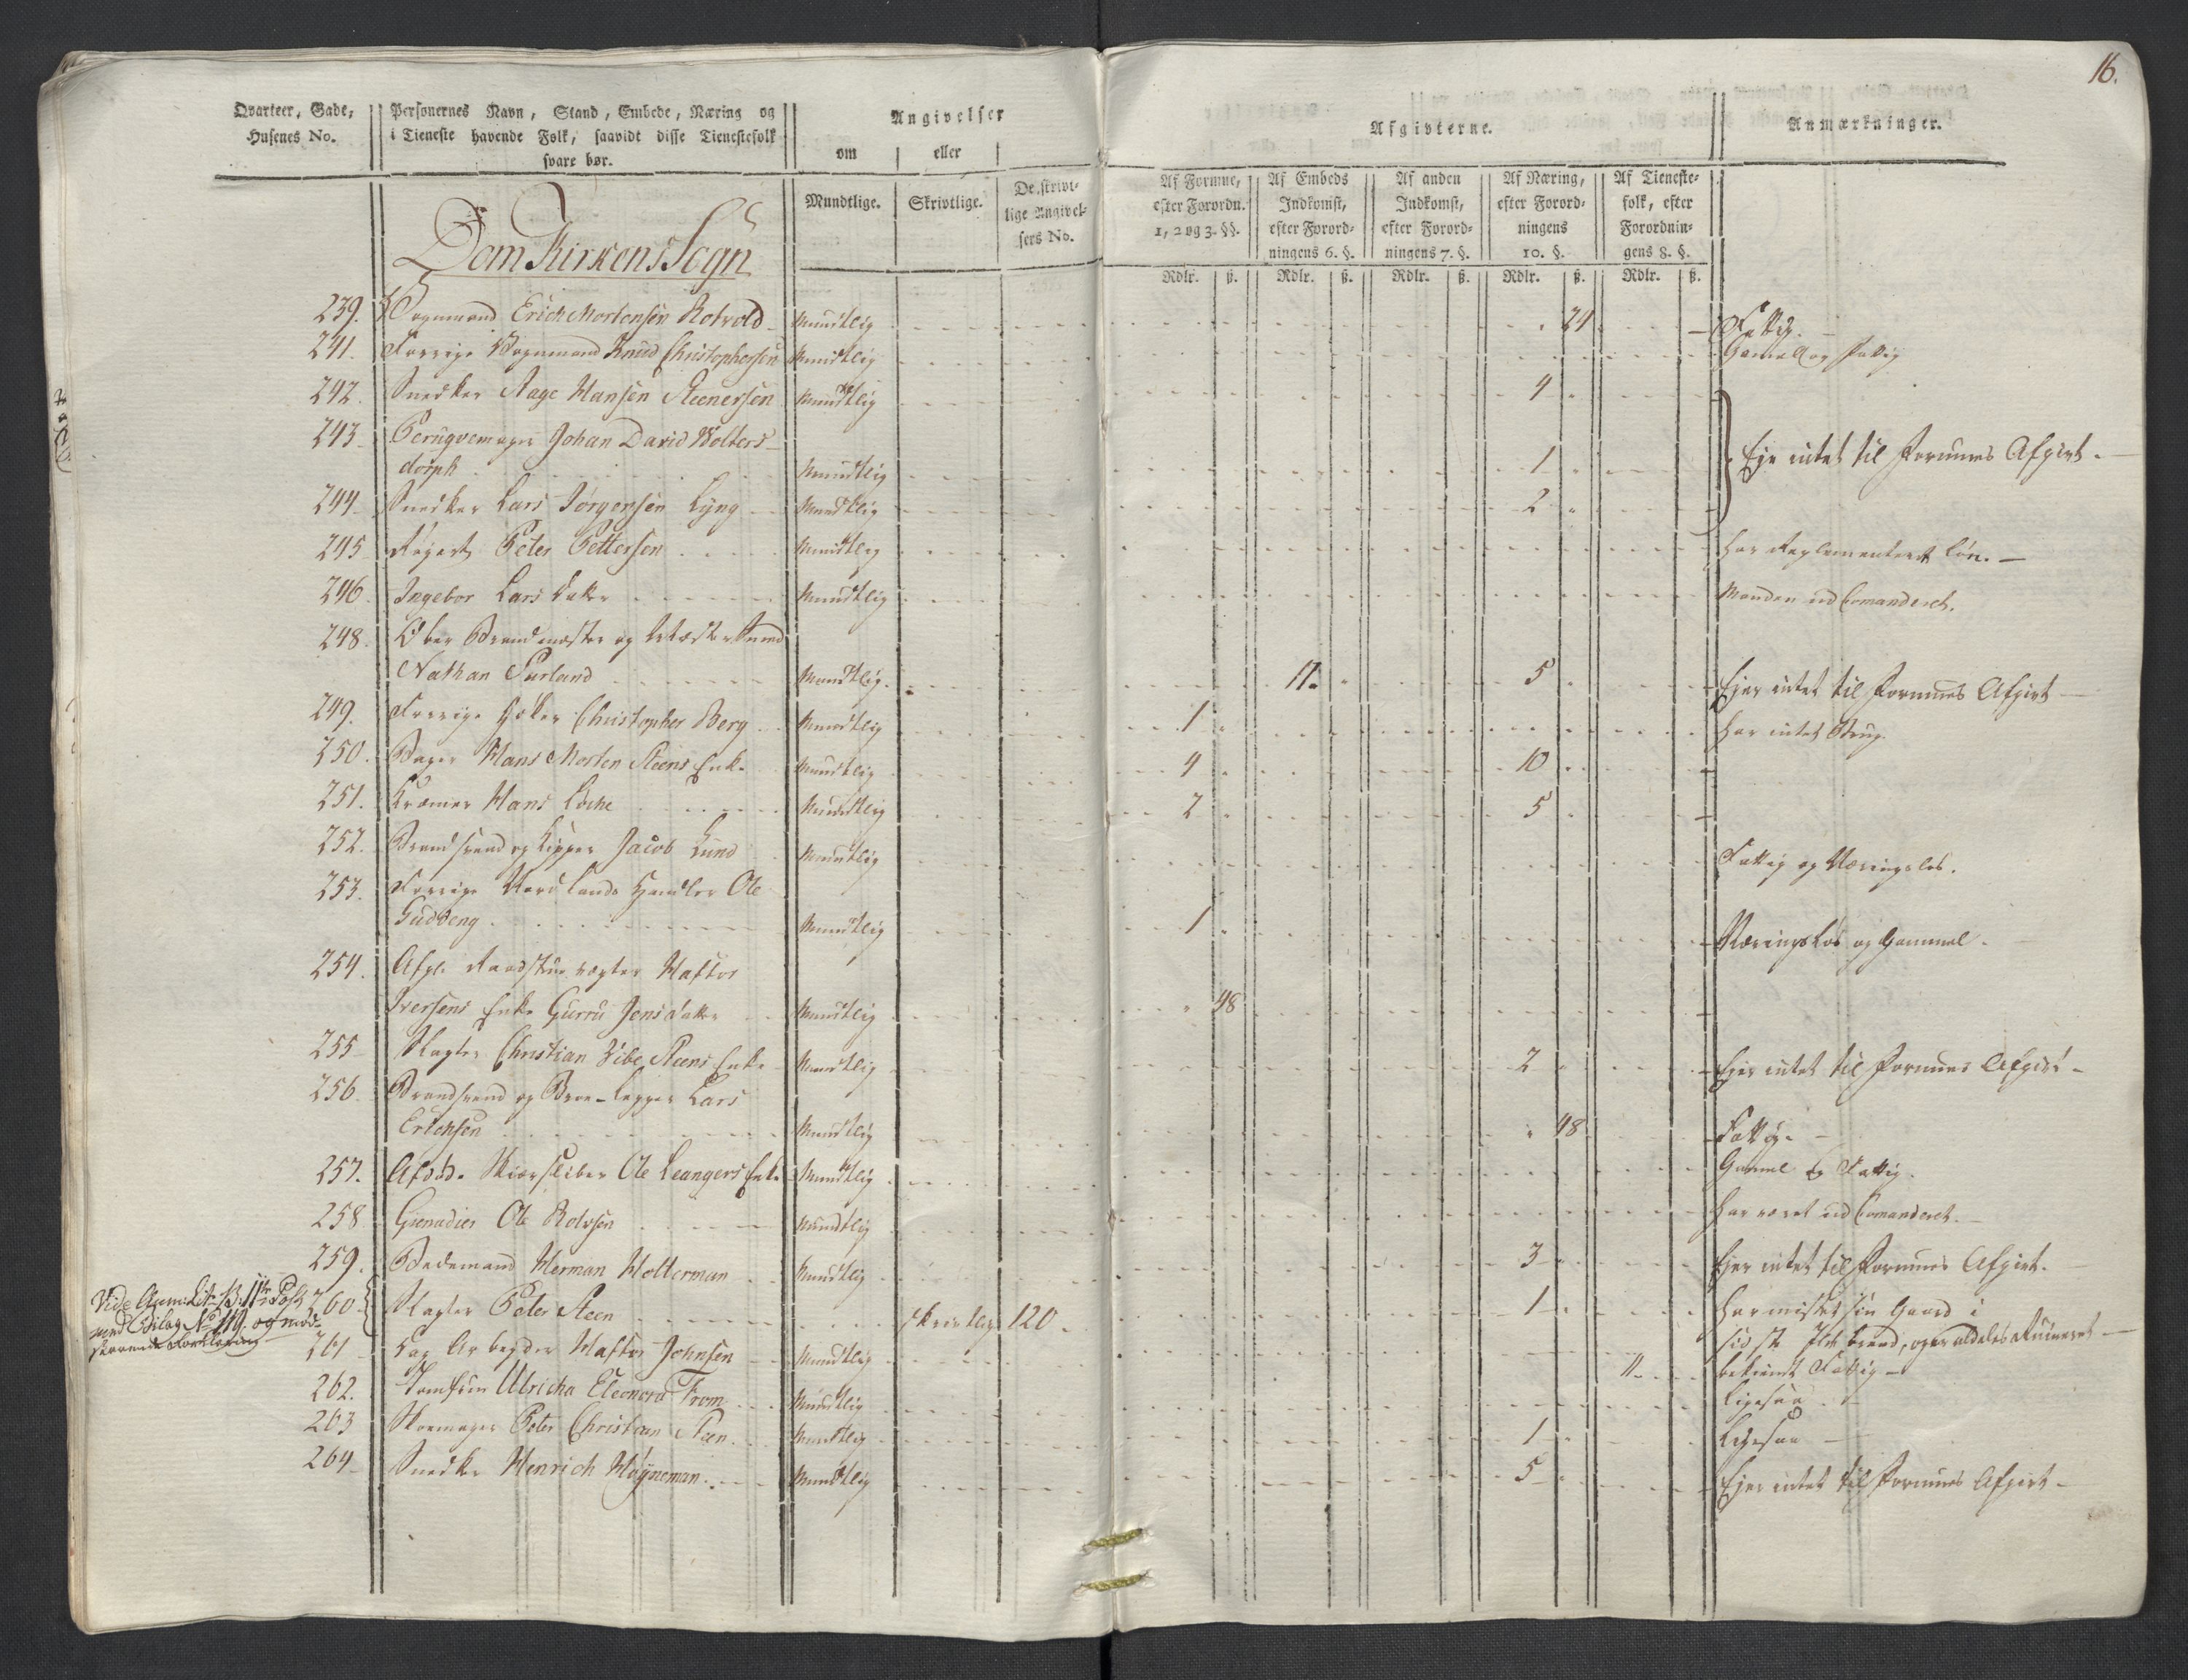 16.
Qvarteer, Gade,
Husenes No.
Personernes Navn, Stand, Embede, Næring og
i Tieneste havende Folk, saavidt disse Tienestefolk
svare bør.
Angivelser
om eller
Mundtlige. Skrivtlige. De skrivt-
lige Angivel-
sers No.
Afgivterne.
Af Formue,
efter Forordn.
1, 2 og 3. §§.
Af Embeds
Indkomst,
efter Forord-
ningens 6. §.
Af anden
Indkomst,
efter Forord-
ningens 7. §.
Af Næring,
efter Forord-
ningens
10. §.
Af Tieneste-
folk, efter
Forordnin-
gens 8. §.
Rdlr. ß. Rdlr. ß. Rdlr. ß. Rdlr. ß. Rdlr. ß.
Anmærkninger.
Dom Kirkens Sogn
239. Vognmand Erich Mortensen Rotvold Mundtlig 24 Fattig.
241. Forrige Vognmand Knud Christophersen Mundtlig Gammel og fattig
242. Snedker Aage Hansen Steenersen Mundtlig 4
243. Peruqvemager Johan David Wolters-
dorph Mundtlig 1 Eje intet til Formues Afgivt.
244. Snedker Lars Jørgensen Lyng Mundtlig 2
245 Peter Pettersen Mundtlig har Reglementeret Løn.
246. Ingebor Lars datter Mundtlig Manden ud Comanderet.
248. Ober Brandmester og
Nathan Purland Mundtlig. 11. 5 Ejer intet til Formues Afgivt
249. Forrige Høker Christopher Berg Mundtlig 1 har intet Brug.
250. Bager Hans Morten Steens Enke Mundtlig 4 10
251. Kræmer Hans Loche Mundtlig 2 5
252. Brandsvend og Jacob Lund Mundtlig Fattig og Næringsløs.
253. Forrige Nordlands Handler Ole
Gudding Mundtlig 1 Næringsløs og Gammel.
254. Afg. Raadstue vægter Haftor
Iversens Enke Gurru Jensdatter Mundtlig 48
255 Slagter Christian Zibe Steens Enke Mundtlig 2 Ejer intet til Formues Afgivt
256. Brandsvend og Broe-legger Lars
Erichsen Mundtlig 48 Fattig.
257. Afdøde Skiærsliber Ole Leangers Enke Mundtlig Gammel og Fattig.
258 Grenadier Ole Rolvsen Mundtlig har været ud Comanderet.
259. Bedemand Herman Holterman Mundtlig 3 Ejer intet til Formues Afgivt.
Vide med Bilag No. 119. og
260 Slagter Peter Steen Skrivtlig 120. 1 har mistet sin Gaard i
sidste Ildebrand, og er aldeles Ruineret
261 Arbeyder Haftor Johnsen Mundtlig bekiendt Fattig
262. Jomfrue Ulricha Eleonora From Mundtlig Ligesaa
263 Skoemager Peter Christian Steen Mundtlig 1 Ligesaa
264 Snedker Henrich Høyneman Mundtlig 5 Ejer intet til Formues Afgivt